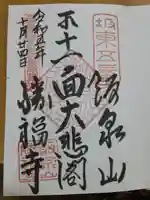 坂東五
飯泉山
十一面大悲閣
勝福寺
令和五年
十月廿四日